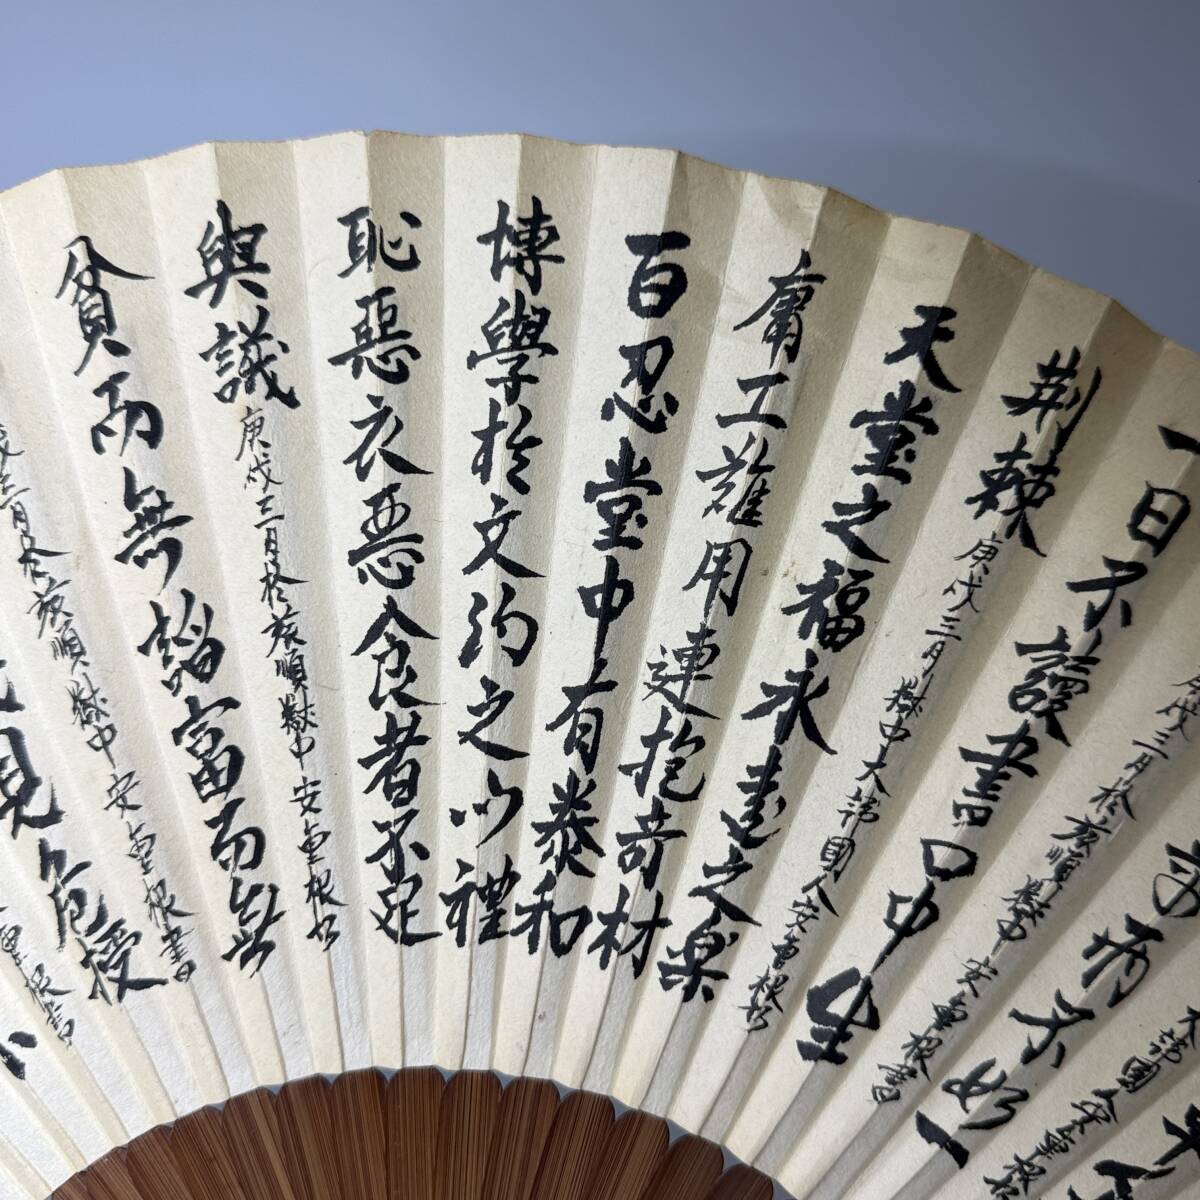 兩不如一
大韓國人安重根
庚戌三月於旅順獄中安重根書
一日不讀書口中生
荊棘
庚戌三月獄中大韓國人安重根書
天堂之福永遠之樂
庸工難用連抱奇材
百忍堂中有泰和
博學於文約之以禮
恥惡衣惡食者不足
與議
庚戌三月於旅順獄中安重根書
貧而無諂富而無
戌三月於旅順獄中安重根書
見危授
重根書